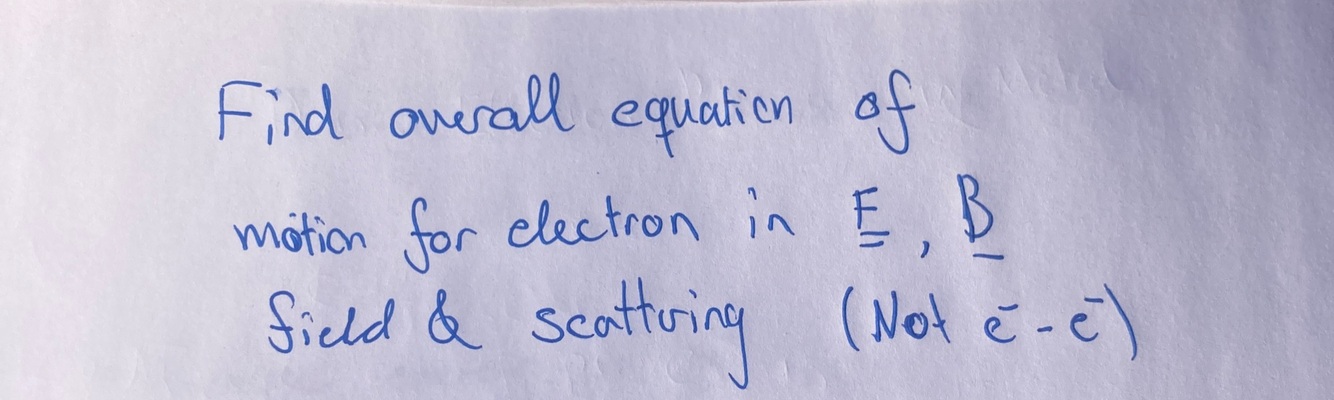 Find overall equation of
motion for electron in E, B
field & scattering (Not e⁻-e⁻)